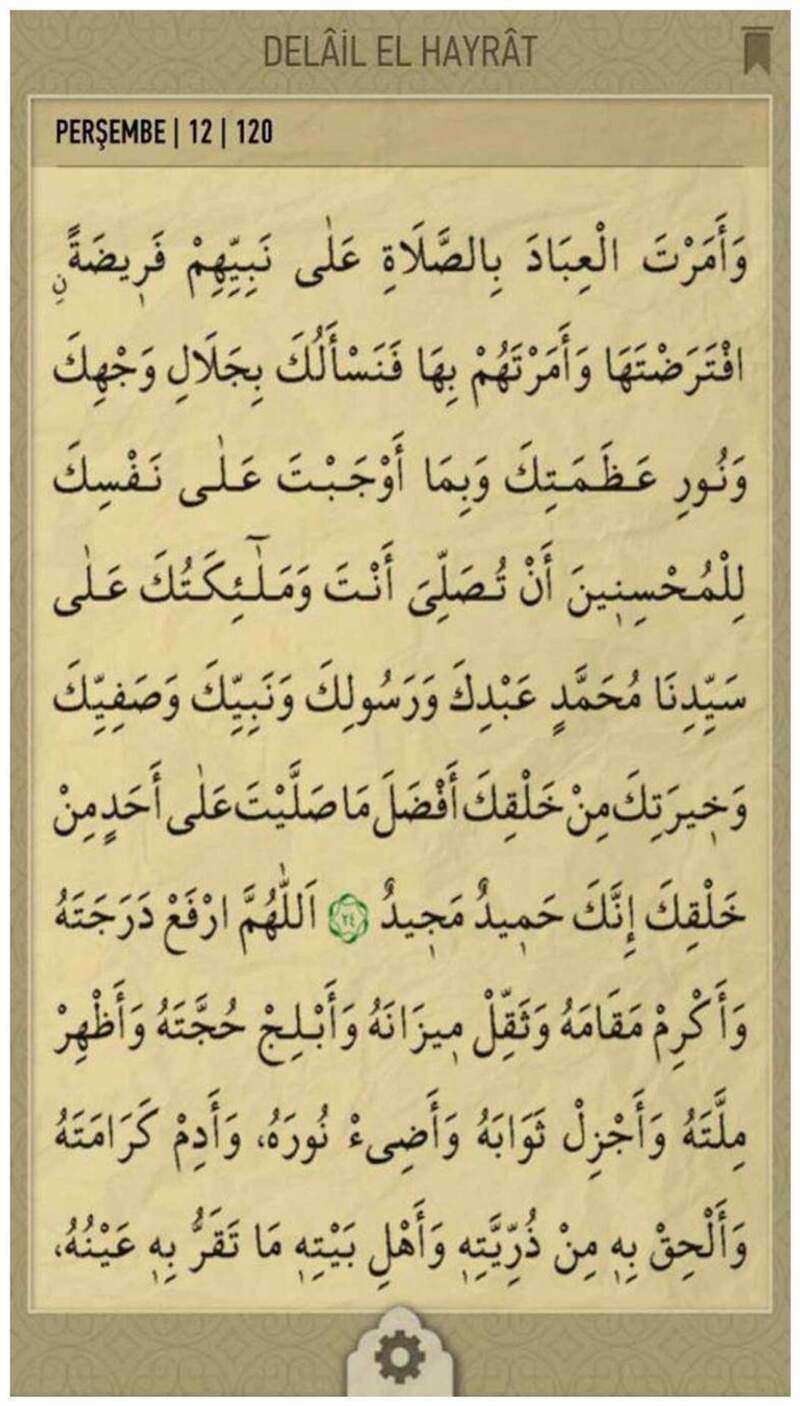 DELÂİL EL HAYRÂT
PERŞEMBE | 12 | 120
وَأَمَرْتَ الْعِبَادَ بِالصَّلَاةِ عَلٰى نَبِيِّهِمْ فَرِيضَةً نِ
افْتَرَضْتَهَا وَأَمَرْتَهُمْ بِهَا فَنَسْأَلُكَ بِجَلَالِ وَجْهِكَ
وَنُورِ عَظَمَتِكَ وَبِمَا أَوْجَبْتَ عَلٰى نَفْسِكَ
لِلْمُحْسِنِينَ أَنْ تُصَلِّىَ أَنْتَ وَمَلٰٓئِكَتُكَ عَلٰى
سَيِّدِنَا مُحَمَّدٍ عَبْدِكَ وَرَسُولِكَ وَنَبِيِّكَ وَصَفِيِّكَ
وَخِيرَتِكَ مِنْ خَلْقِكَ أَفْضَلَ مَا صَلَّيْتَ عَلٰى أَحَدٍ مِنْ
خَلْقِكَ إِنَّكَ حَمِيدٌ مَجِيدٌ ٢٤ اَللّٰهُمَّ ارْفَعْ دَرَجَتَهُ
وَأَكْرِمْ مَقَامَهُ وَثَقِّلْ مِيزَانَهُ وَأَبْلِجْ حُجَّتَهُ وَأَظْهِرْ
مِلَّتَهُ وَأَجْزِلْ ثَوَابَهُ وَأَضِىءْ نُورَهُ، وَأَدِمْ كَرَامَتَهُ
وَأَلْحِقْ بِهِ مِنْ ذُرِّيَّتِهِ وَأَهْلِ بَيْتِهِ مَا تَقَرُّ بِهِ عَيْنُهُ،